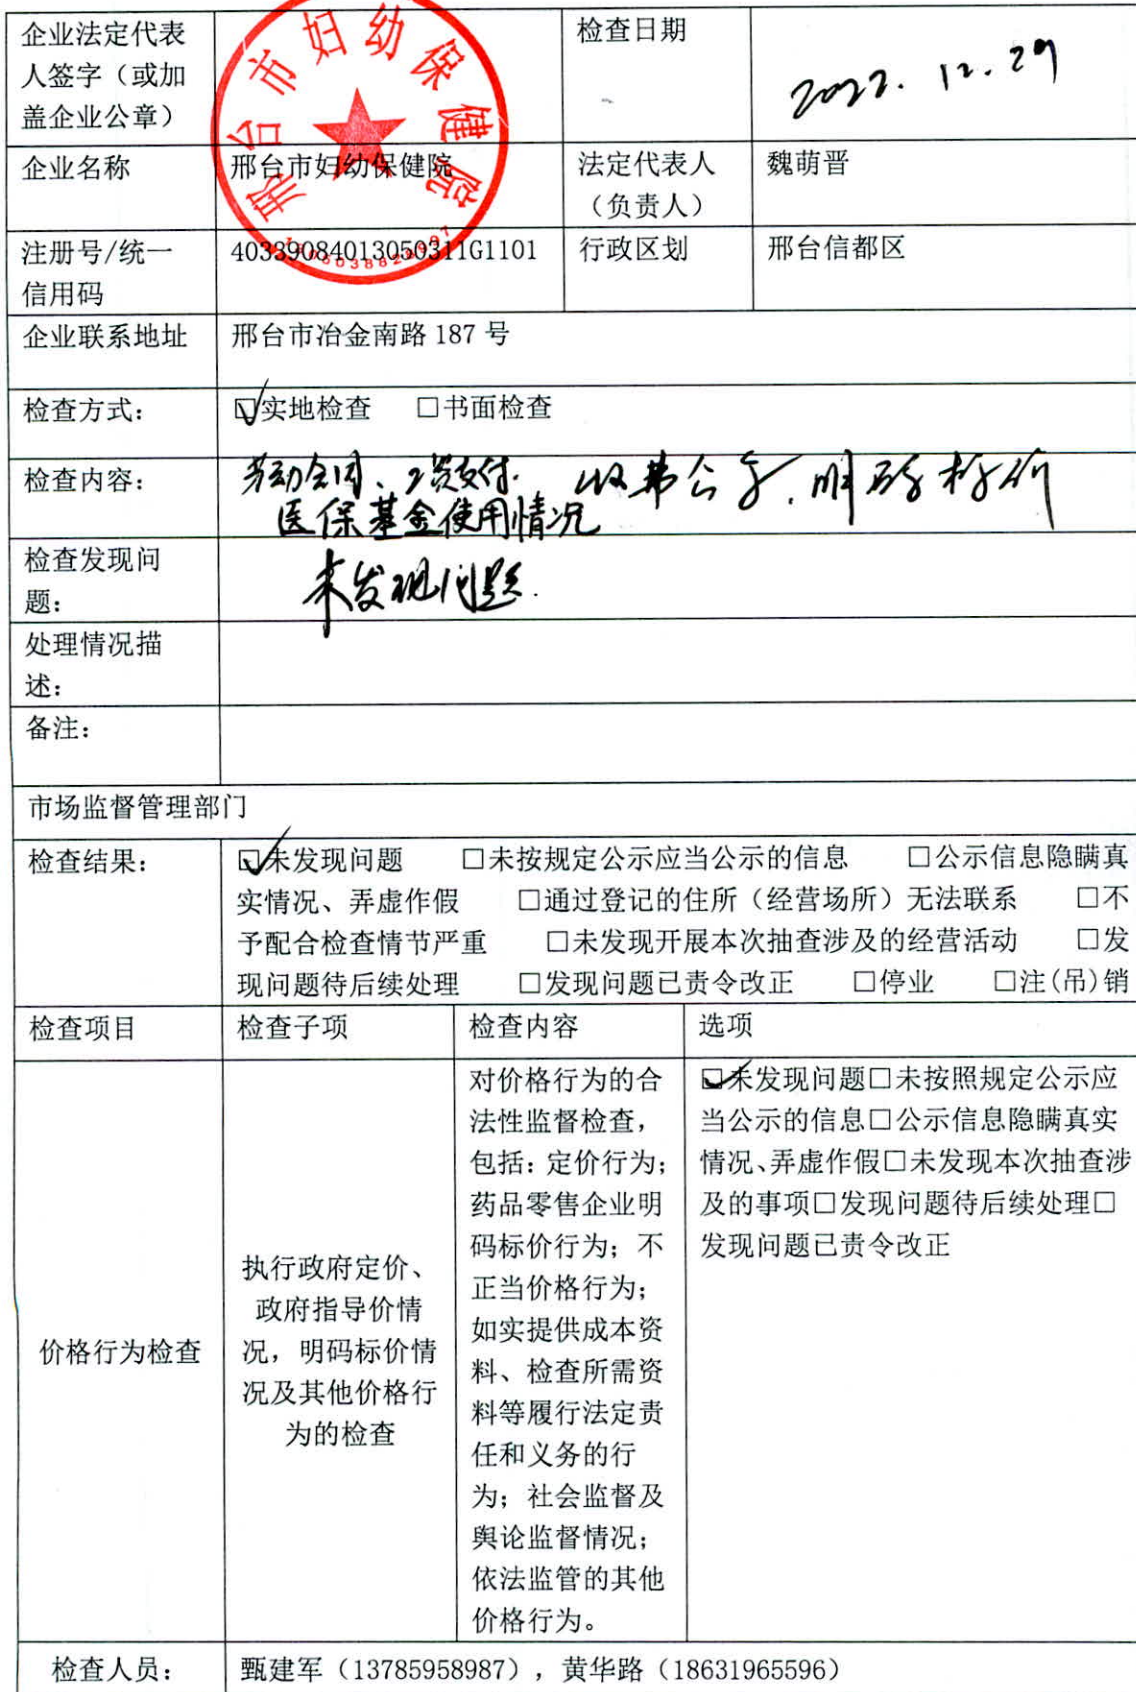 企业法定代表 检查日期 2022.12.29
人签字（或加
盖企业公章）
邢台市妇幼保健院
企业名称 邢台市妇幼保健院 法定代表人 魏萌晋
（负责人）
注册号/统一 40339084013050311G1101 行政区划 邢台信都区
信用码
企业联系地址 邢台市冶金南路 187 号
检查方式： ☑实地检查 □书面检查
检查内容： 劳动合同、工资支付. 收费公示,明码标价
医保基金使用情况
检查发现问
题：
未发现问题.
处理情况描
述：
备注：
市场监督管理部门
检查结果： ☑未发现问题 □未按规定公示应当公示的信息 □公示信息隐瞒真
实情况、弄虚作假 □通过登记的住所（经营场所）无法联系 □不
予配合检查情节严重 □未发现开展本次抽查涉及的经营活动 □发
现问题待后续处理 □发现问题已责令改正 □停业 □注(吊)销
检查项目 检查子项 检查内容 选项
价格行为检查
执行政府定价、
政府指导价情
况，明码标价情
况及其他价格行
为的检查
对价格行为的合
法性监督检查，
包括：定价行为；
药品零售企业明
码标价行为；不
正当价格行为；
如实提供成本资
料、检查所需资
料等履行法定责
任和义务的行
为；社会监督及
舆论监督情况；
依法监管的其他
价格行为。
☑未发现问题□未按照规定公示应
当公示的信息□公示信息隐瞒真实
情况、弄虚作假□未发现本次抽查涉
及的事项□发现问题待后续处理□
发现问题已责令改正
检查人员： 甄建军（13785958987），黄华路（18631965596）